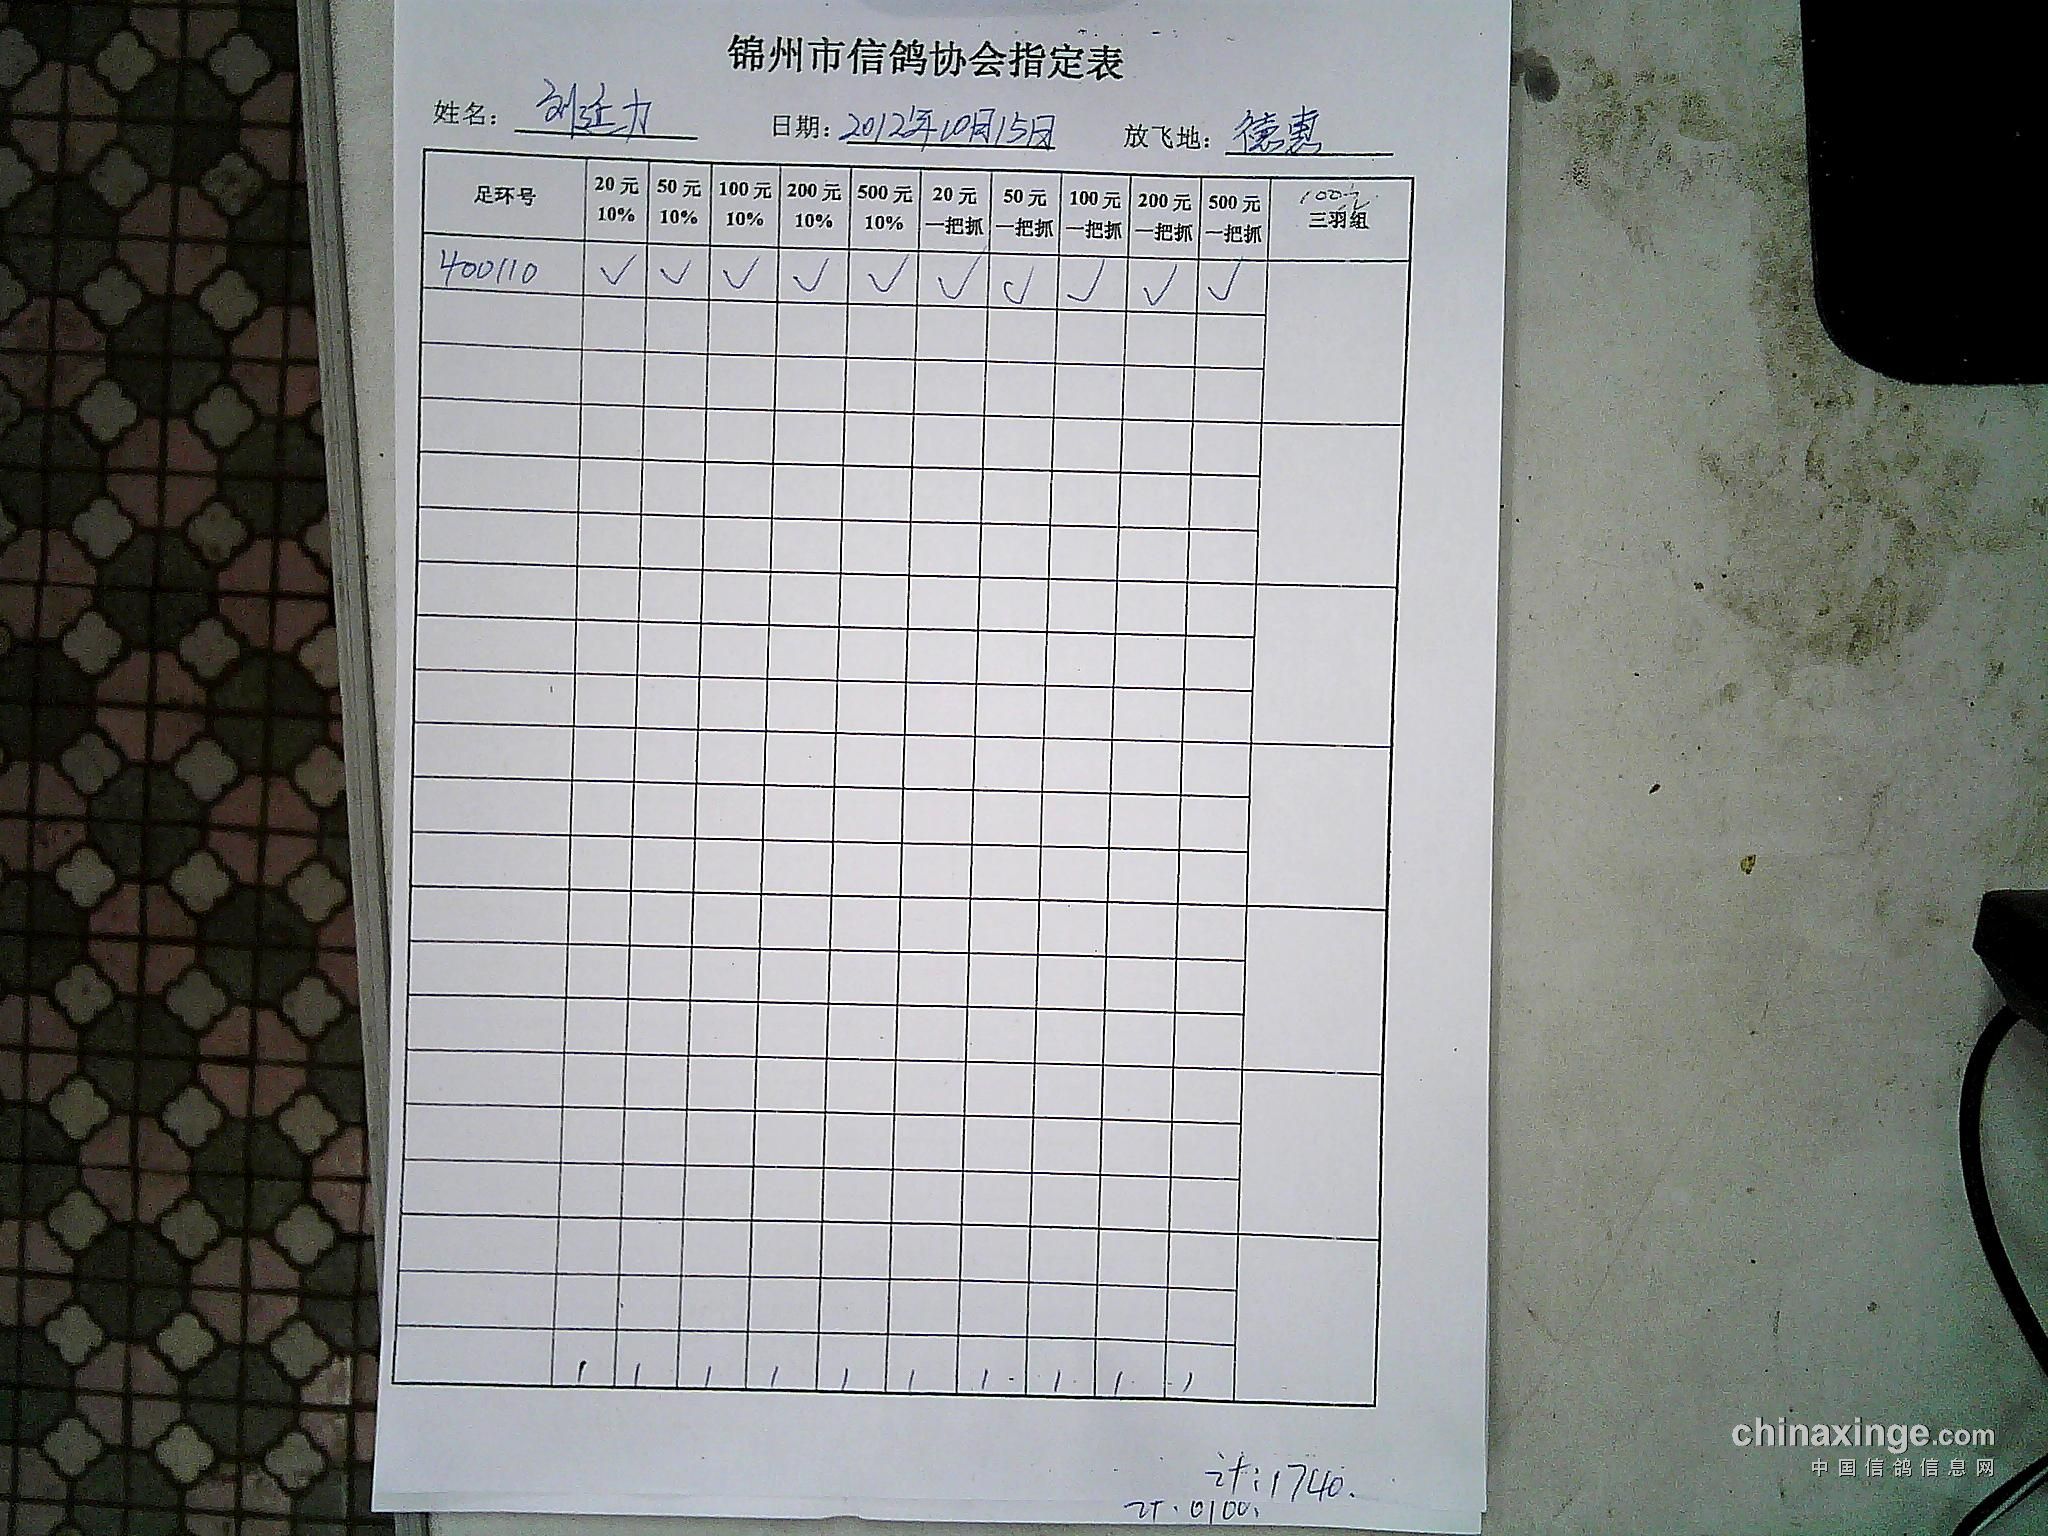 锦州市信鸽协会指定表
姓名： 刘廷力 日期：2012年10月15日 放飞地：德惠
足环号 20元 10% 50元 10% 100元 10% 200元 10% 500元 10% 20元 一把抓 50元 一把抓 100元 一把抓 200元 一把抓 500元 一把抓 100元 三羽组
400110 ✓ ✓ ✓ ✓ ✓ ✓ ✓ ✓ ✓ ✓
1 1 1 1 1 1 1 1 1 1
计：1740.
chinaxinge.com
中国信鸽信息网